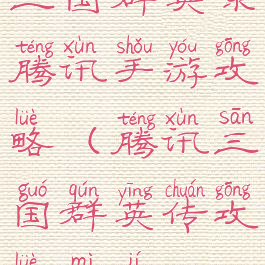 téng xùn shǒu yóu gōng
腾讯手游攻
lüè téng xùn sān
略（腾讯三
guó qún yīng chuán gōng
国群英传攻
lüè mì jí